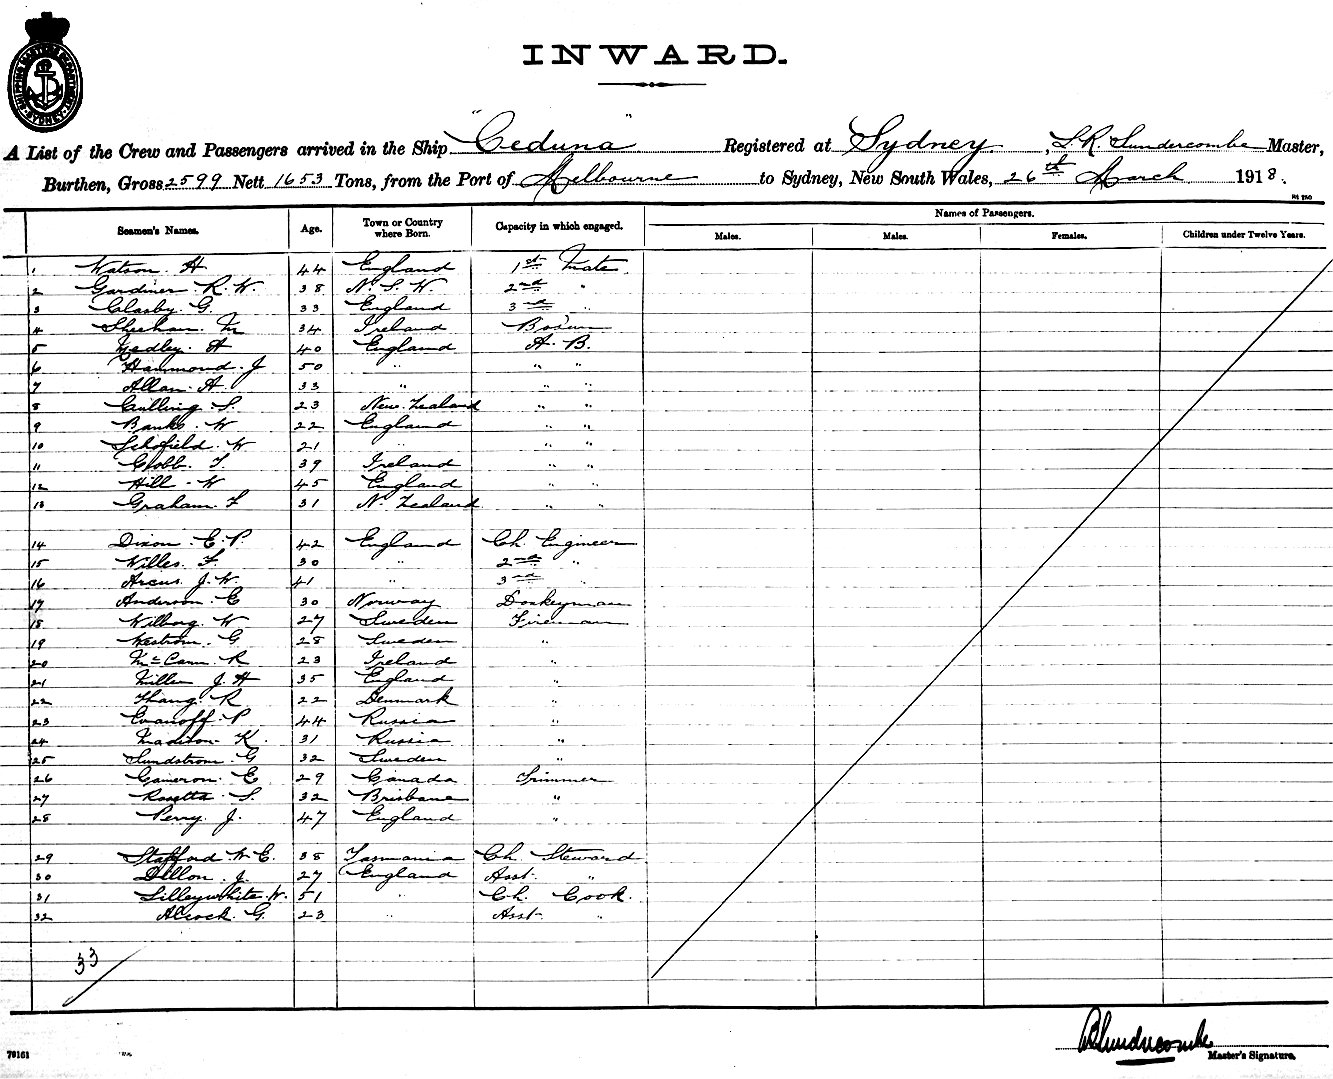 SHIPPING MASTERS DEPARTMENT SYDNEY
INWARD.
A List of the Crew and Passengers arrived in the Ship "Ceduna" Registered at Sydney, Master,
Burthen, Gross 2599 Nett 1653 Tons, from the Port of Melbourne to Sydney, New South Wales, 26th March 1918.
Seamen's Names. Age. Town or Country where Born. Capacity in which engaged. Names of Passengers.
Males. Males. Females. Children under Twelve Years.
1 Watson. H 44 England 1st Mate
2 Gardiner R. W. 38 N. S. W. 2nd "
3 Clasby. G. 33 England 3rd "
4 Sheehan. M 34 Ireland Bosun
5 Medley. A 40 England A. B.
6 Hammond. J 50 " " "
7 Allan. A. 33 "
8 Culling. S. 23 New Zealand " "
9 Banks. W 22 England " "
10 Schofield. W 21 " " "
11 Clobb. T. 39 Ireland " "
12 Hill. W 45 England " "
13 Graham. F 31 N. Zealand " "
14 Dixon. E. P. 42 England Ch. Engineer
15 Willes. F. 30 " 2nd "
16 Arcus. J. W. 41 " 3rd "
17 Anderson. C 30 Norway Donkeyman
18 Wilborg. W 27 Sweden Fireman
19 Westrom. G 28 Sweden "
20 McCann. R 23 Ireland "
21 Miller J. H 35 England "
22 R 22 Denmark "
23 Evanoff. P 44 Russia "
24 Madison. K. 31 Russia "
25 Sundstrom. G 32 Sweden "
26 Cameron. E 29 Canada Trimmer
27 Rosetta. S. 32 Brisbane "
28 Perry. J. 47 England "
29 Stafford. W. E. 38 Tasmania Ch. Steward
30 Dillon. J. 27 England Asst. "
31 Lilleywhite. W. 51 " Ch. Cook.
32 Alcock. G. 23 " Asst. "
33
Master's Signature.
79161